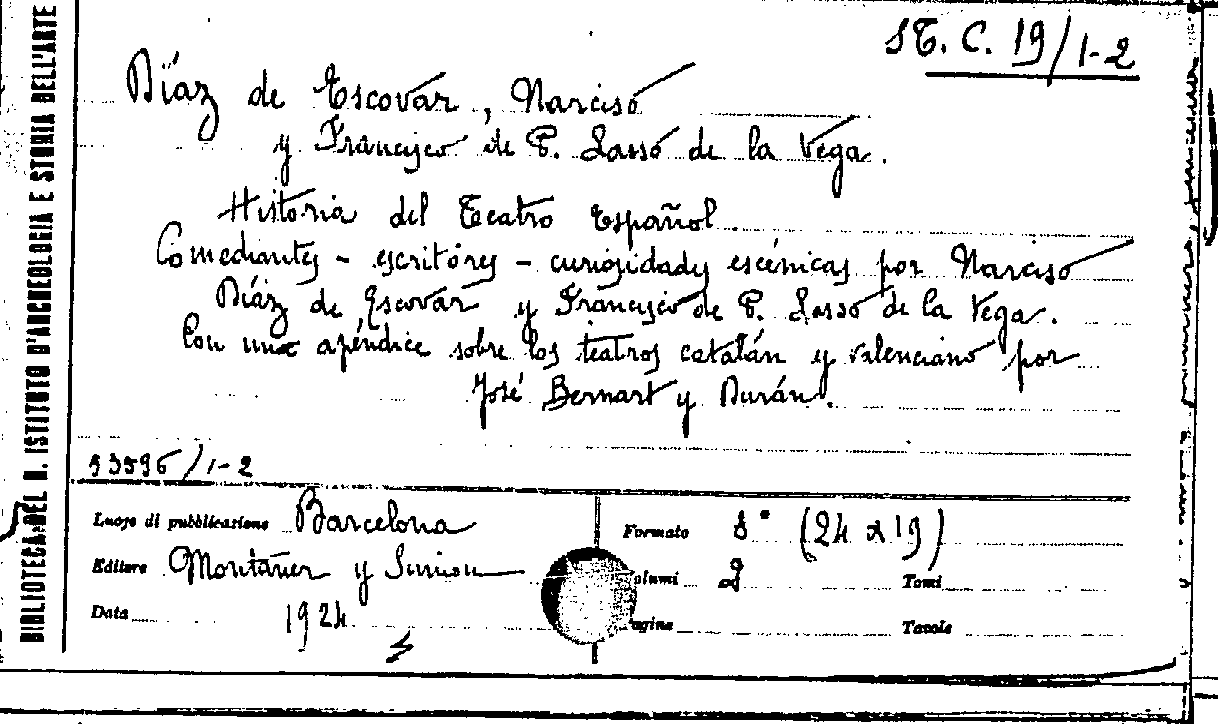 BIBLIOTECA DEL R. ISTITUTO D'ARCHEOLOGIA E STORIA DELL'ARTE
ST. C. 19/1-2
Díaz de Escovar, Narciso
y Francisco de P. Lasso de la Vega.
Historia del Teatro Español.
Comediantes - escritores - curiosidades escénicas por Narciso
Díaz de Escovar y Francisco de P. Lasso de la Vega.
Con una apéndice sobre los teatros catalán y valenciano por
José Bernart y Durán.
53596/1-2
Luogo di pubblicazione Barcelona
Editore Montaner y Simon
Data 1924
Formato 8° (24 x 19)
olumi 2 Tomi
agine Tavole